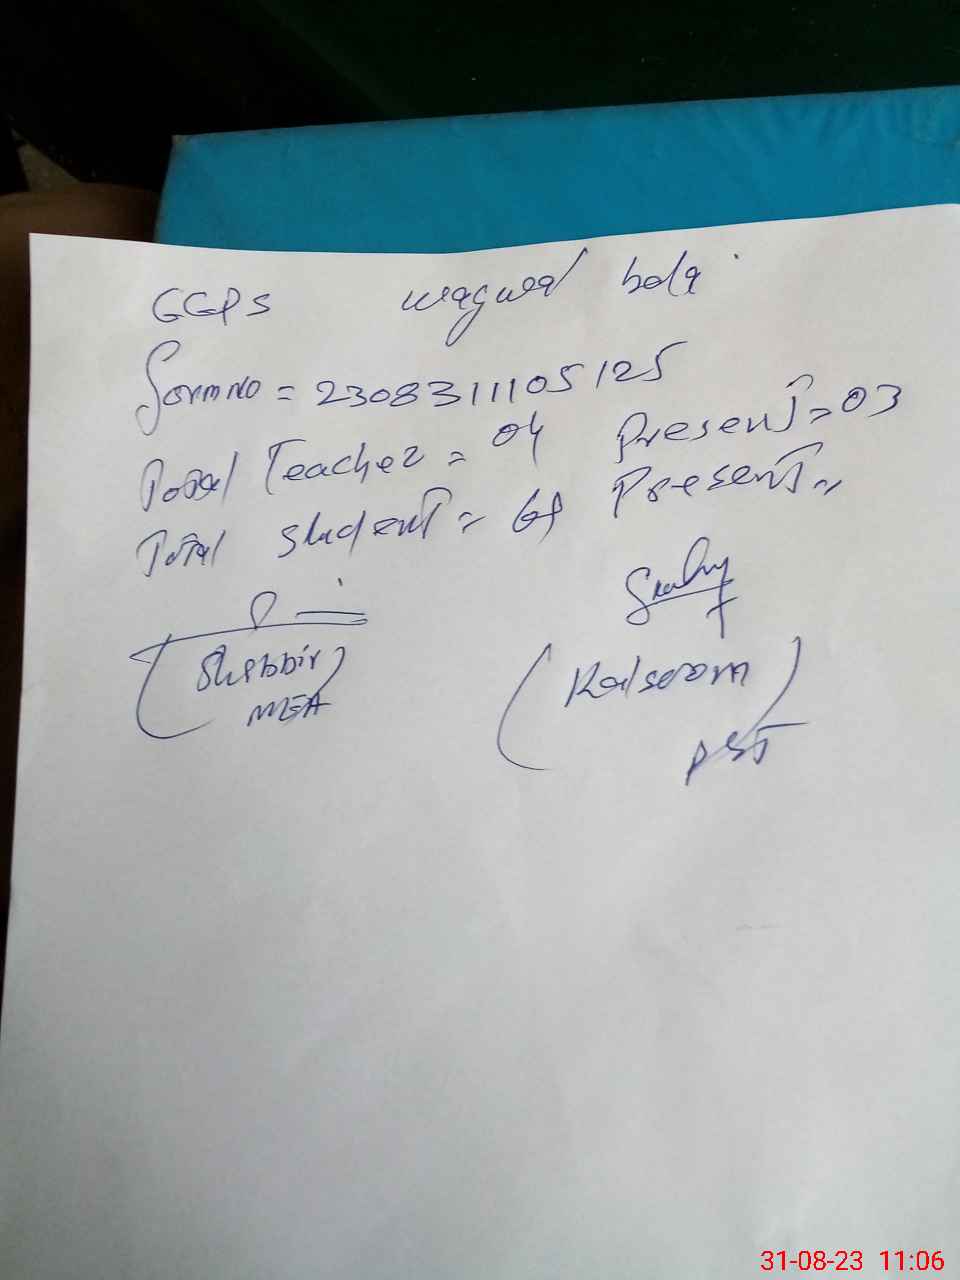 GGPS wagwal bala
Form No = 2308311105125
Total Teacher = 04 Present = 03
Total student = Present =
(Shabbir)
MEA
(Kalsoom)
PST
31-08-23 11:06